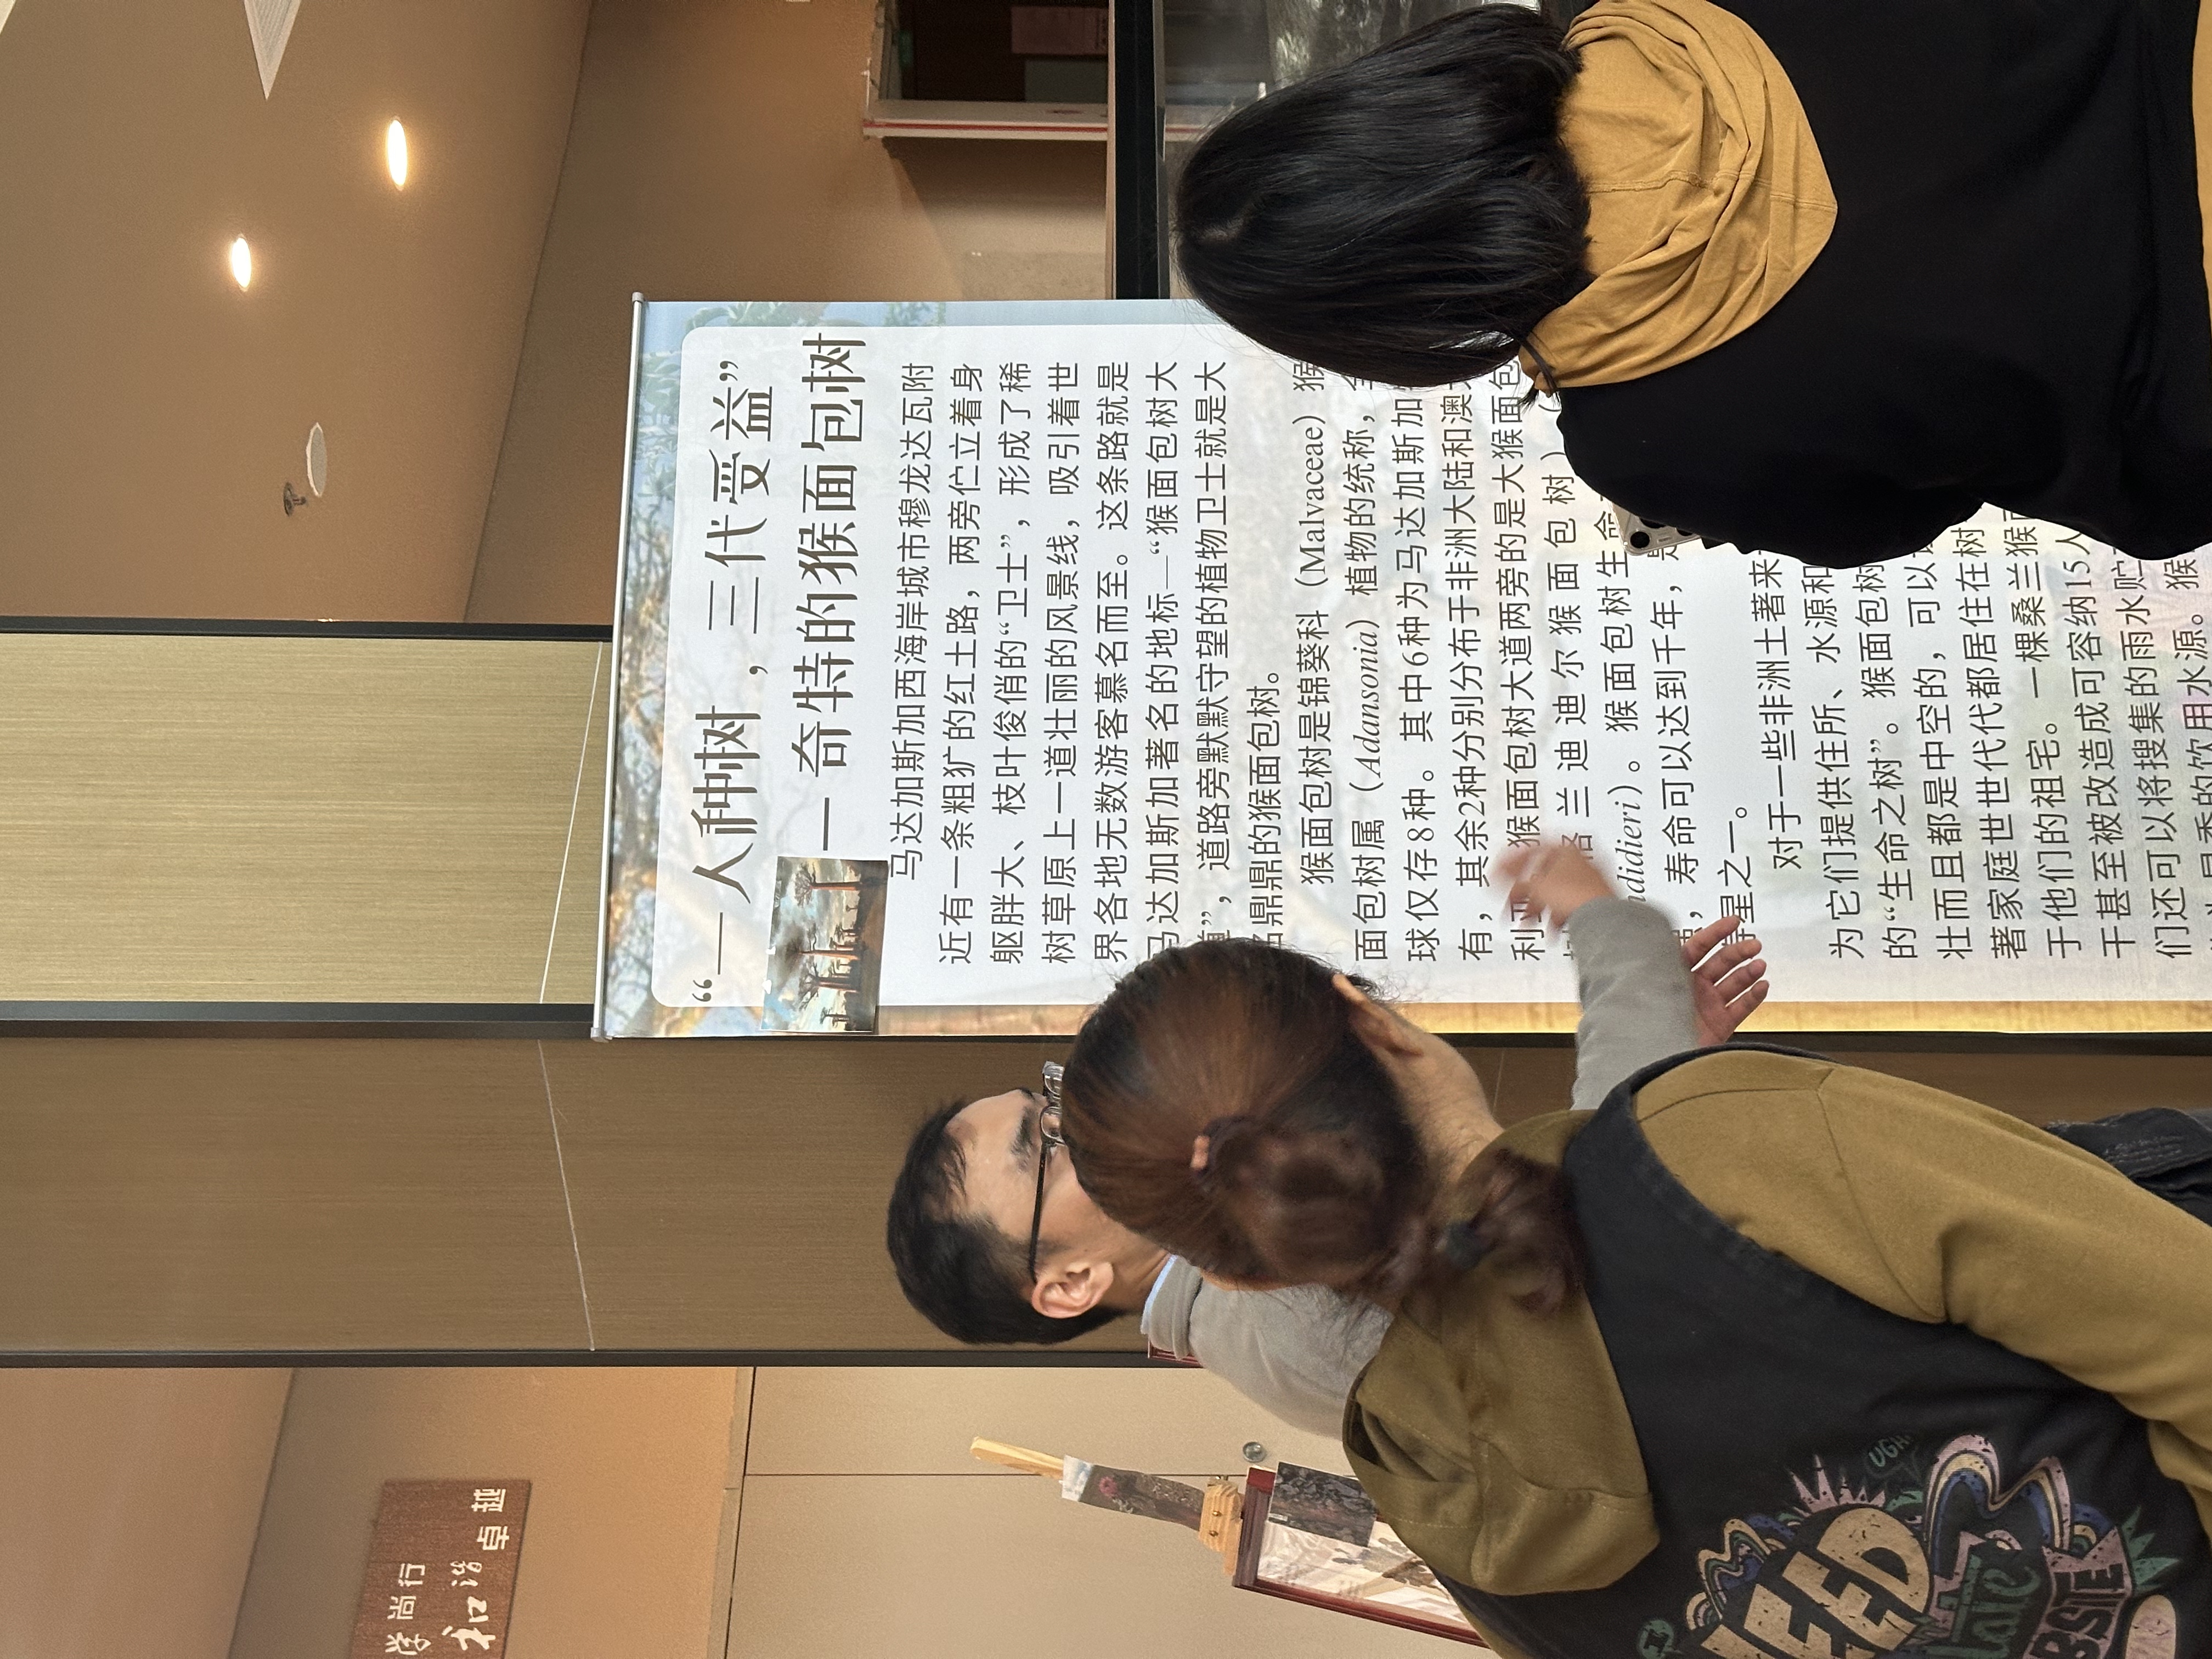 “一人种树，三代受益”
— 奇特的猴面包树
马达加斯加西海岸城市穆龙达瓦附
近有一条粗犷的红土路，两旁伫立着身
躯胖大、枝叶俊俏的“卫士”，形成了稀
树草原上一道壮丽的风景线，吸引着世
界各地无数游客慕名而至。这条路就是
马达加斯加著名的地标—“猴面包树大
道”，道路旁默默守望的植物卫士就是大
名鼎鼎的猴面包树。
猴面包树是锦葵科（Malvaceae）猴
面包树属（Adansonia）植物的统称，全
球仅存8种。其中6种为马达加斯加
有，其余2种分别分布于非洲大陆和澳
利亚。猴面包树大道两旁的是大猴面包
格兰迪迪尔猴面包树）（
didieri）。猴面包树生命
，寿命可以达到千年，是
寿星之一。
对于一些非洲土著来
为它们提供住所、水源和
的“生命之树”。猴面包树
壮而且都是中空的，可以
著家庭世世代代都居住在树
于他们的祖宅。一棵桑兰猴面
干甚至被改造成可容纳15人
们还可以将搜集的雨水贮
的饮用水源。猴
学尚行
和谐
卓越
UGH
I
NEED
Hate
BSITE